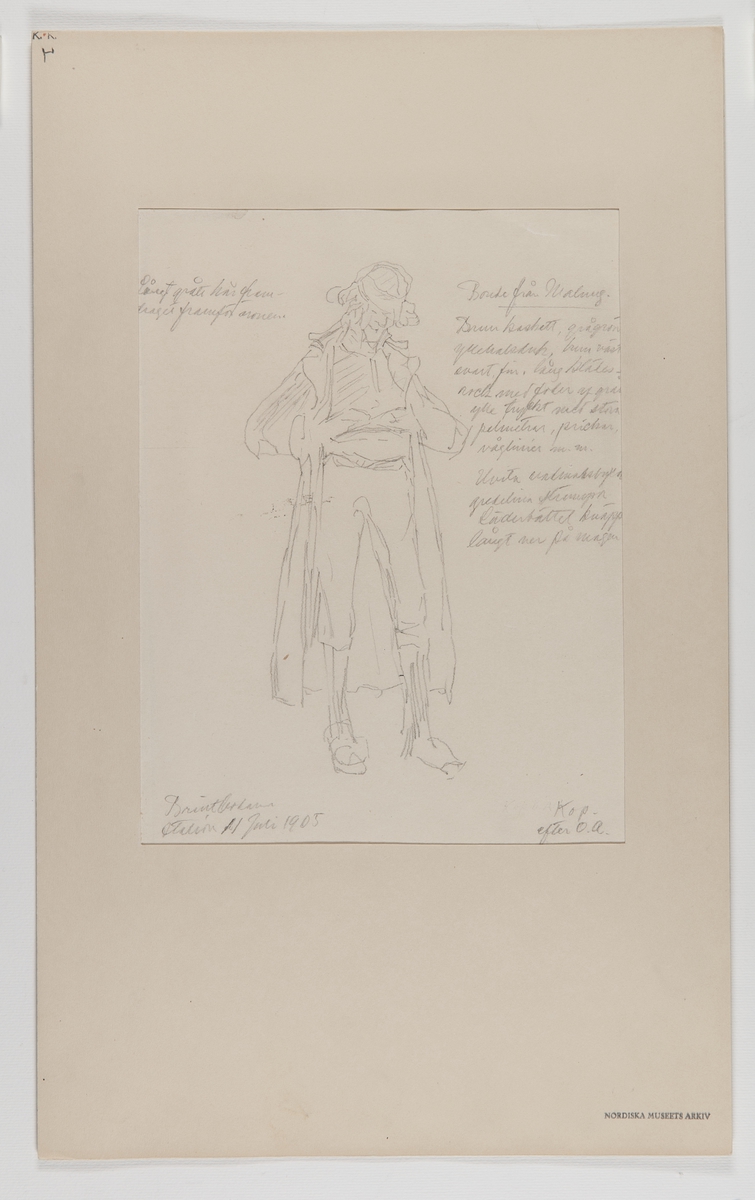 K.K.
Långt grått hår fram-
draget framför öronen.
Bonde från Malung.
Brun baskett, grågrön
yllehalsduk, brun väst
svart för. lång klädes-
rock med foder af grå
ylle tryckt med stora
palmetter, prickar,
våglinier m.m.
Hvita vadmalsbyxor
gredelina strumpor
Läderbältet knäppt
långt ner på magen
Station 11 Juli 1905
Kop.
efter O.A.
NORDISKA MUSEETS ARKIV